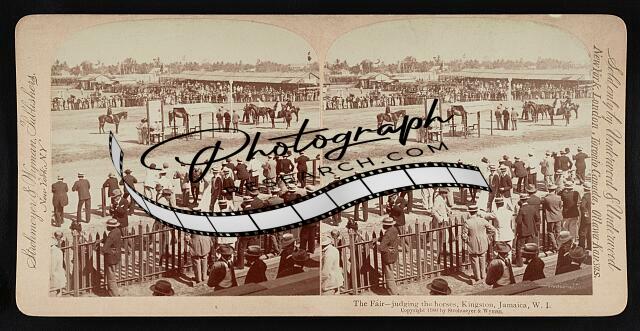 Strohmeyer & Wyman, Publishers,
New York, N.Y.
Photograph
RESEARCH.COM
Sold only by Underwood & Underwood
New York, London, Toronto-Canada, Ottawa-Kansas.
The Fair—judging the horses, Kingston, Jamaica, W. I.
Copyright 1900 by Strohmeyer & Wyman.